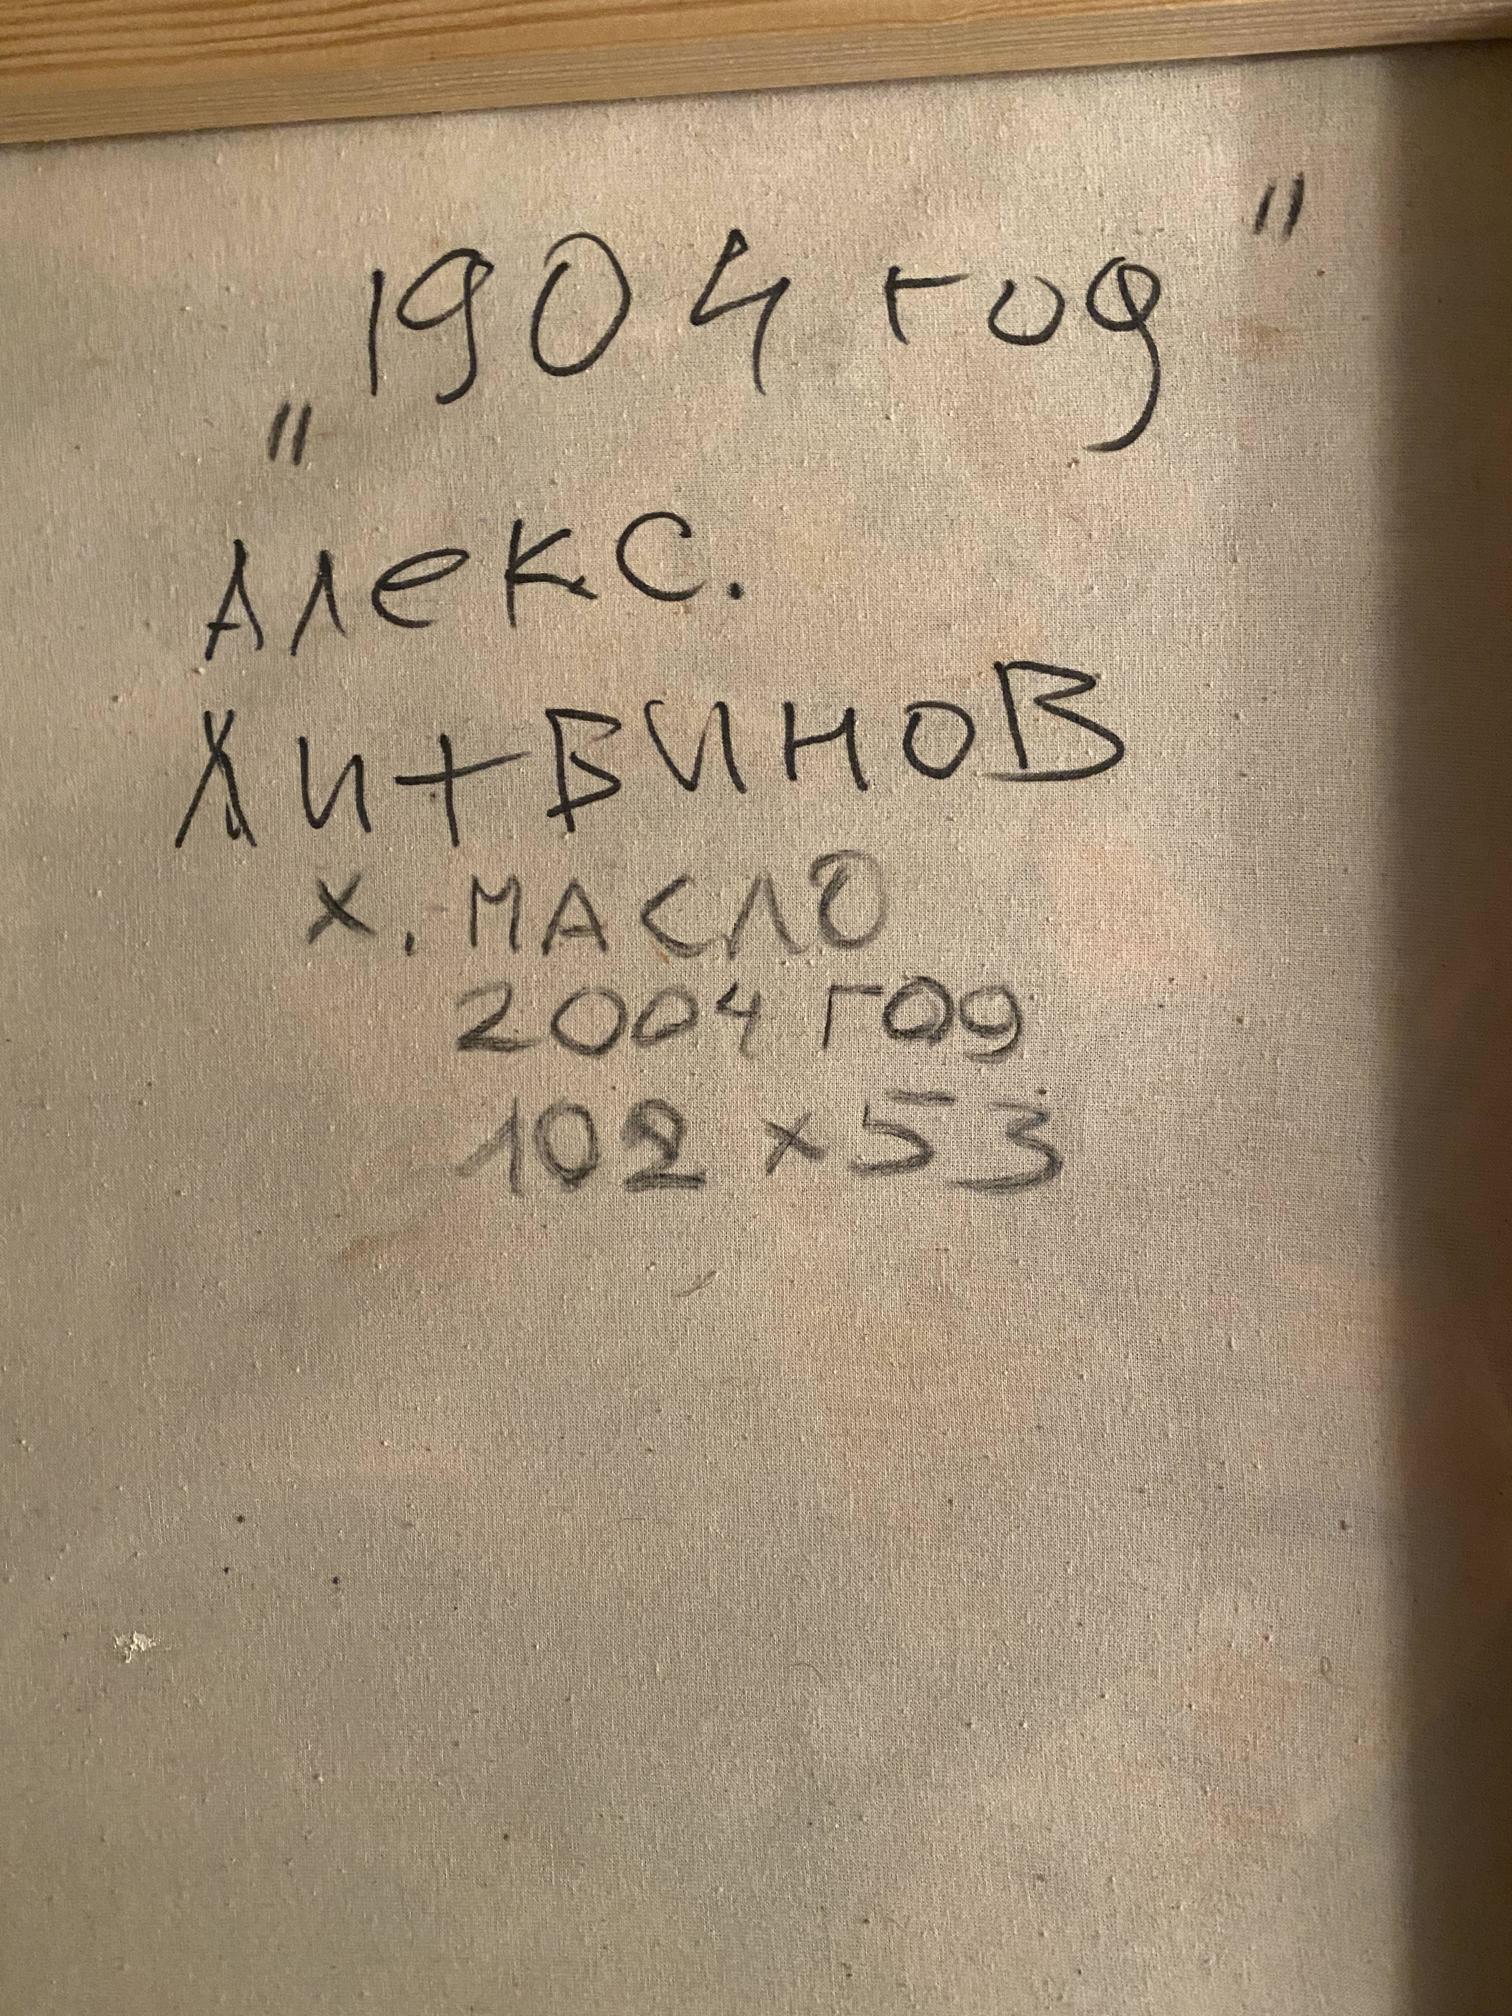 „1904 год"
Алекс.
Литвинов
х. МАСЛО
2004 год
102 x 53